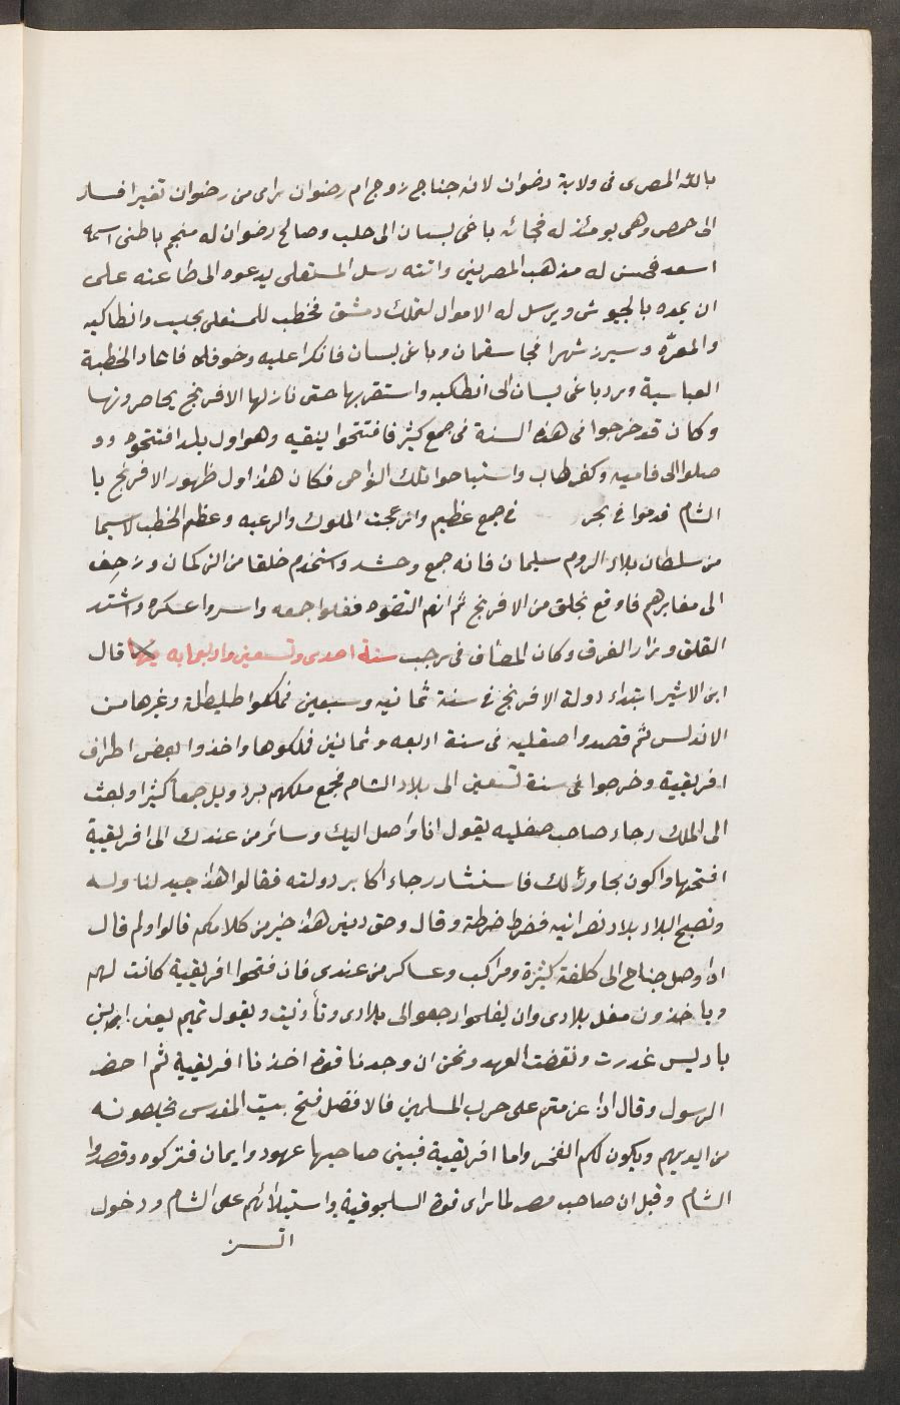 بالله المصرى فى ولاية رضوان لانه جناح زوج ام رضوان راى من رضوان تغيرا فسار
الى حمص وهى يومئذ له فجائه باغى بسان الى حلب وصالح رضوان له منجم باطنى اسمه
اسعد فحسن له مذهب المصريين واتته رسل المستعلى يدعوه الى طاعته على
ان يمده بالجيوش ويرسل له الاموال لتملك دمشق فخطب للمستعلى بحلب وانطاكيه
والمعرّه وسيرز شهرا فجا سقمان وباغى بسان فانكرا عليه وخوفاه فاعاد الخطبة
العباسية ورد باغى بسان الى انطكيه واستقر بها حتى نازلها الافرنج يحاصرونها
وكان قد خرجوا فى هذه السنة فى جمع كثير فافتتحوا ينقيه وهو اول بلد افتتحوه وو
صلوا الى فاميه وكفر طاب واستباحوا تلك النواحى فكان هذا اول ظهور الافرنج با
الشام قدموا فى بحر فى جمع عظيم وانزعجت الملوك والرعيه وعظم الخطب لاسيما
من سلطان بلاد الروم سليمان فانه جمع وحشد واستخدم خلقا من التركمان وزحف
الى معابرهم فاوقع بخلق من الافرنج ثم انهم التقوه ففلوا جمعه واسروا عسكره واشتد
القلق وزار الفرق وكان المصاف فى رجب سنة احدى وتسعين واربعمايه فيها قال
ابن الاثير ابتداء دولة الافرنج فى سنة ثمانيه وسبعين فملكوا طليطلة وغيرها من
الاندلس ثم قصدوا صقليه فى سنة اربعه وثمانين فملكوها واخذوا بعض اطراف
افريقية وخرجوا فى سنة تسعين الى بلاد الشام فجمع ملكهم بردويل جمعا كثيرا وبعث
الى الملك رجار صاحب صقليه يقول انا واصل اليك وسائر من عندك الى افريقية
افتحها واكون مجاورا لك فاستشار رجار اكابر دولته فقالوا هذا جيد لنا وله
وتصبح البلاد بلاد نصرانيه فضرط ضرطة وقال وحق دينى هذا خير من كلامكم قالوا ولم قال
اذا وصل جناح الى كلفة كثيرة ومراكب وعساكر من عندى فان فتحوا افريقية كانت لهم
وياخذون مغل بلادى وان يفلحوا رجعوا الى بلادى وتأذيت ويقول تميم يعنى ابن
باديس غدرت ونقضت العهد ونحن ان وجدنا قوة اخذنا افريقية ثم احضر
الرسول وقال اذا عزمتم على حرب المسلمين فالافضل فتح بيت المقدس تخلصونه
من ايديهم ويكون لكم الفخر واما افريقية فبينى صاحبها عهود وايمان فتركوه وقصدوا
الشام وقيل ان صاحب مصر لما راى قوة السلجوقية واستيلائهم على الشام ودخول